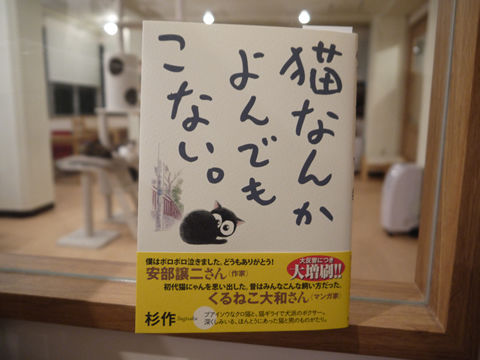 猫なんか
よんでも
こない。
僕はボロボロ泣きました。どうもありがとう!
安部譲二さん(作家)
大反響につき
大増刷!!
初代猫にゃんを思い出した。昔はみんなこんな飼い方だった。
くるねこ大和さん(マンガ家)
杉作 Sugisaku
ブアイソウなクロ猫と、猫ギライで犬派のボクサー。
深くしみいる、ほんとうにあった猫と男のものがたり。